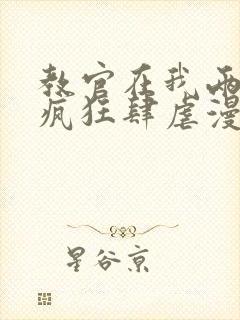 教官在我两
疯狂肆虐漫
星谷京